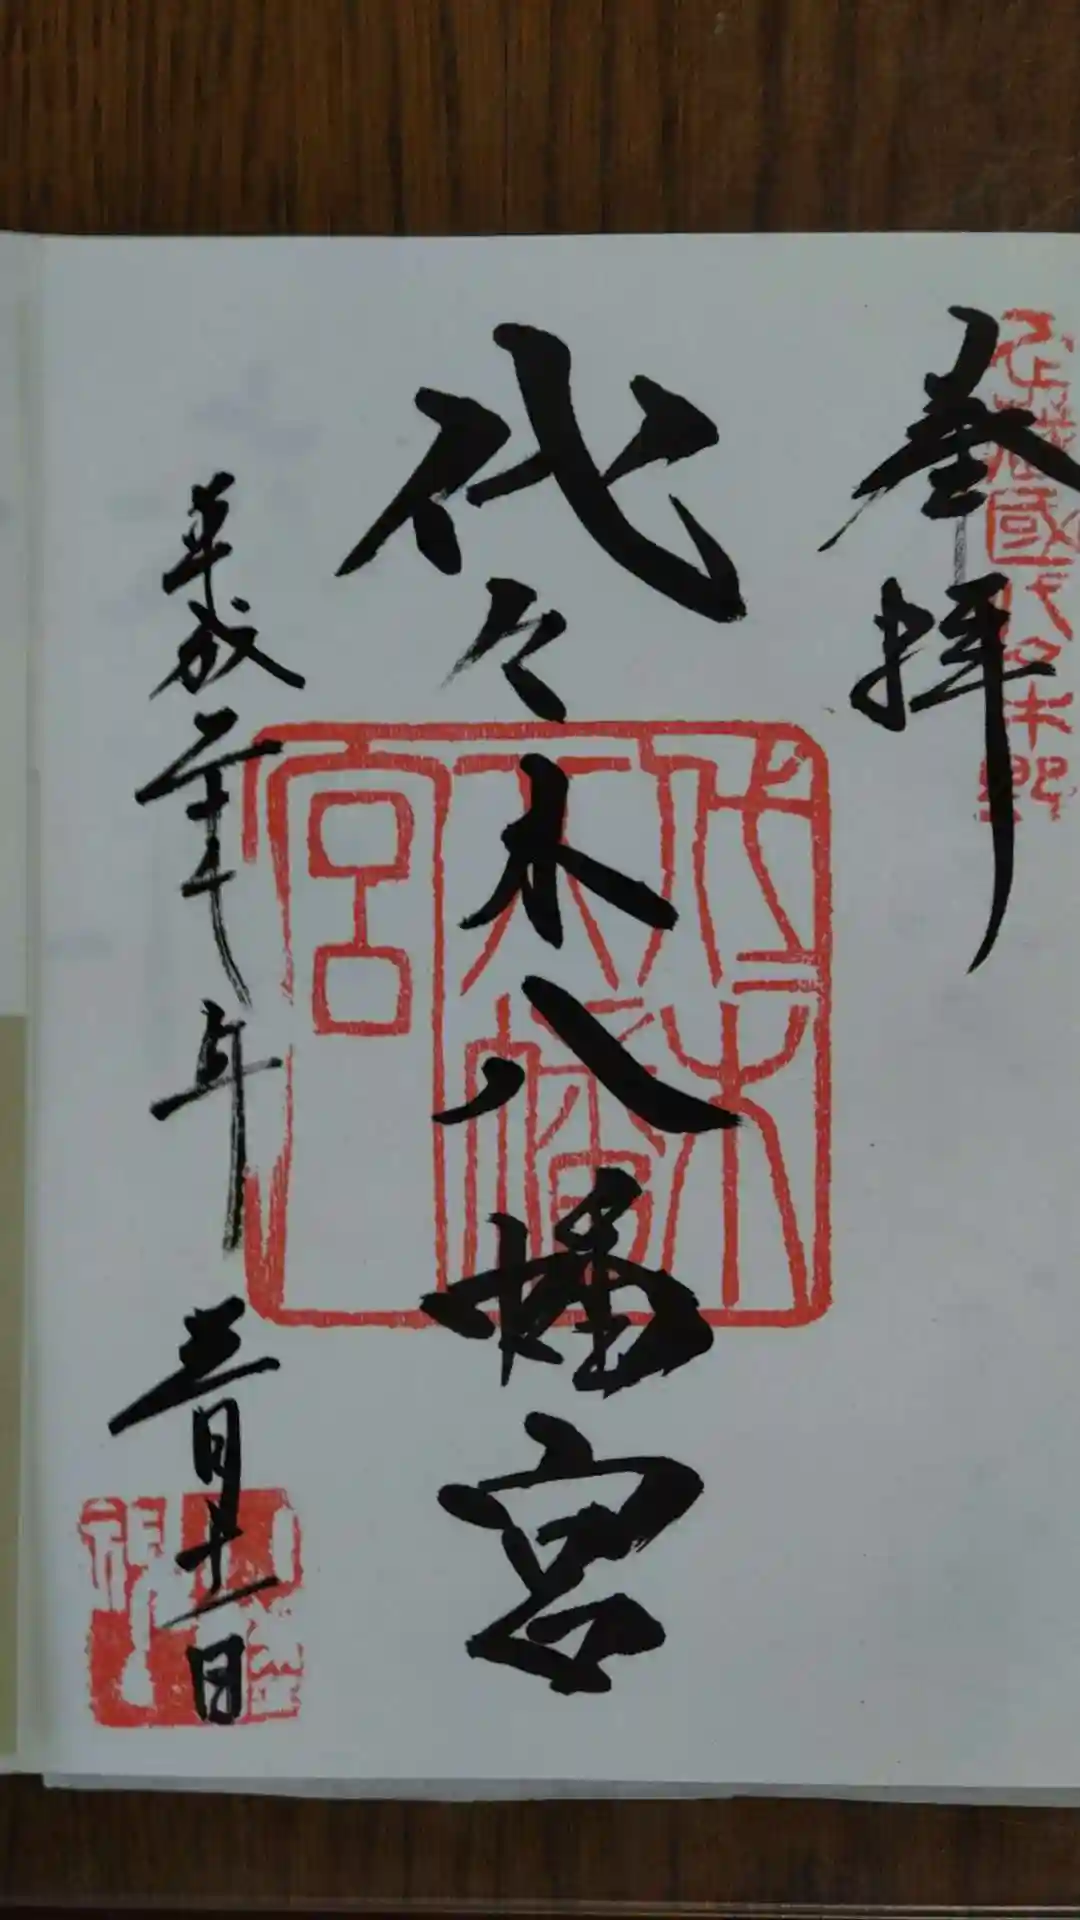 武蔵國代々木郷
奉拝
代々木八幡宮
代々木八幡宮
平成三十年三月十一日